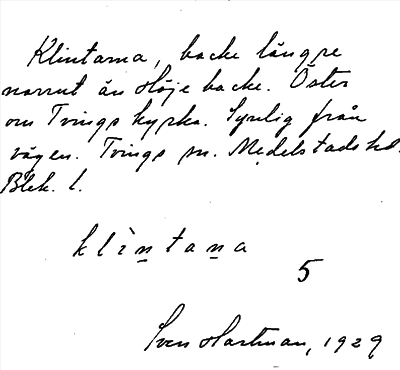 Klintarna, backe längre
norrut än Höje backe. Öster
om Tvings kyrka. Synlig från
vägen. Tvings sn. Medelstads hd.
Blek. l.
klìn̲tan̲a
5
Sven Hartman, 1929